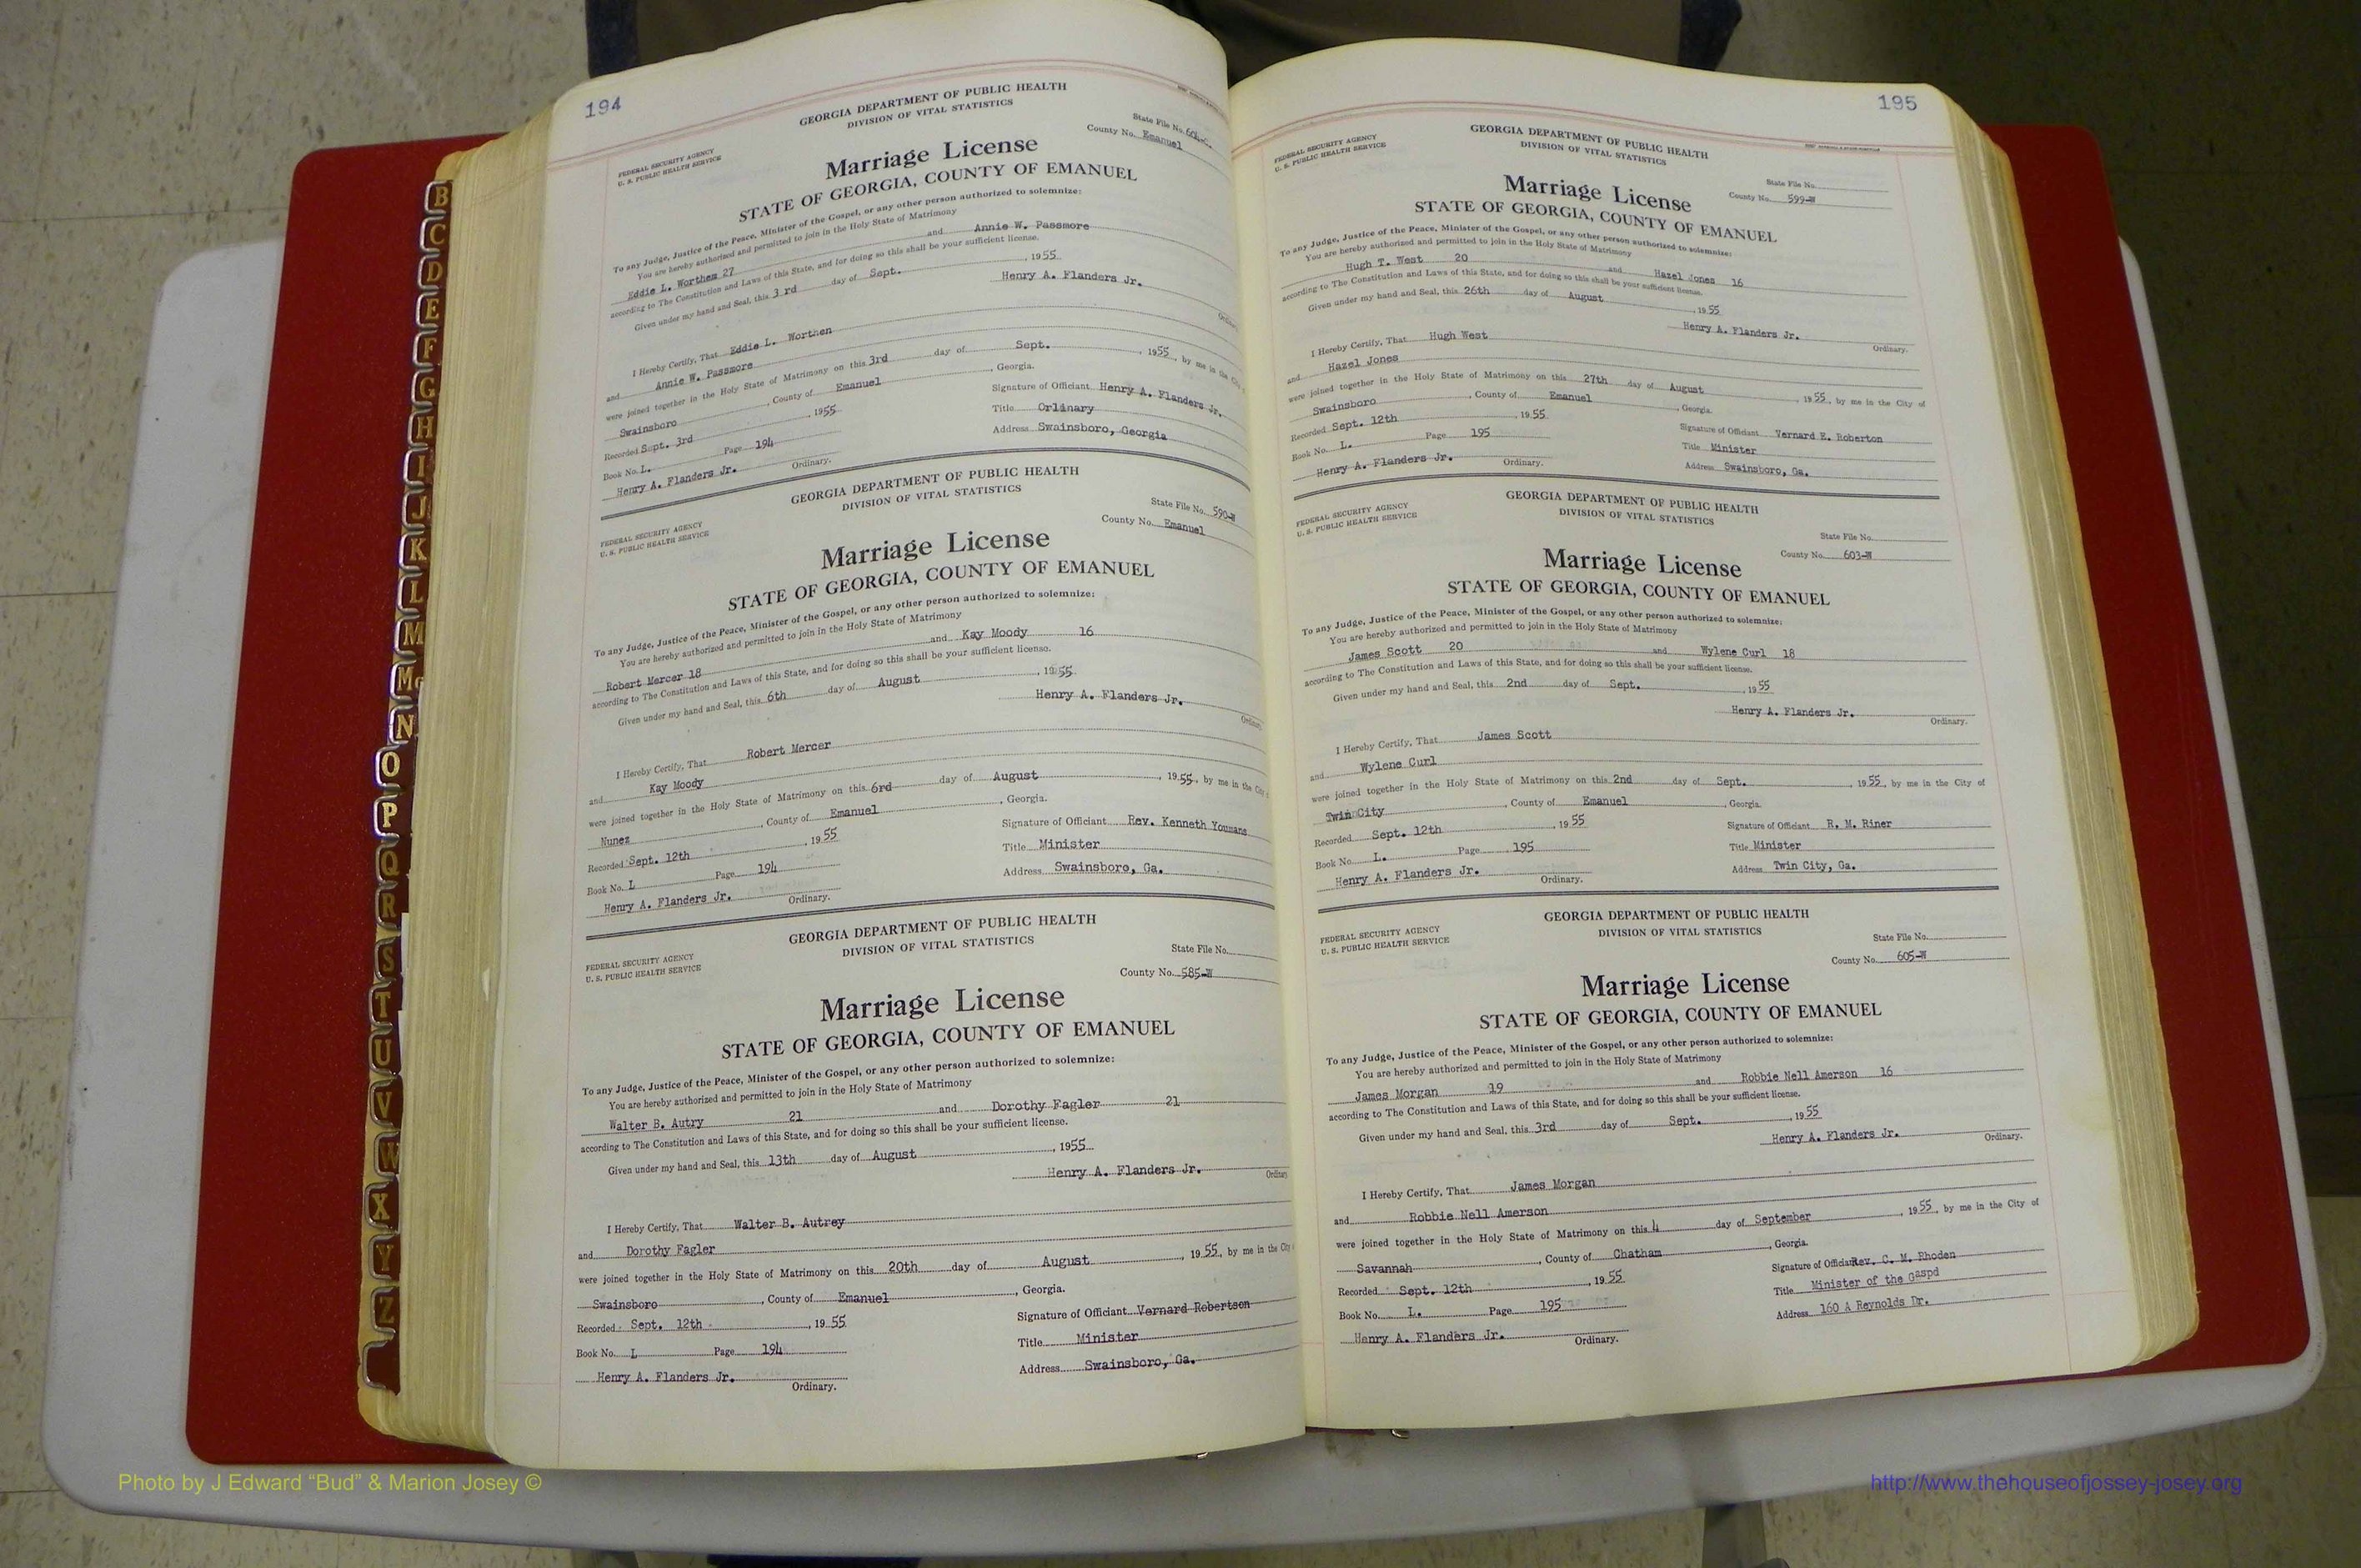 194
GEORGIA DEPARTMENT OF PUBLIC HEALTH
DIVISION OF VITAL STATISTICS
FEDERAL SECURITY AGENCY
U. S. PUBLIC HEALTH SERVICE
State File No.
County No. Emanuel
Marriage License
STATE OF GEORGIA, COUNTY OF EMANUEL
To any Judge, Justice of the Peace, Minister of the Gospel, or any other person authorized to solemnize:
You are hereby authorized and permitted to join in the Holy State of Matrimony
Eddie L. Worthen 27 and Annie W. Passmore
according to The Constitution and Laws of this State, and for doing so this shall be your sufficient license.
Given under my hand and Seal, this 3 rd day of Sept. , 1955
Henry A. Flanders Jr.
I Hereby Certify, That Eddie L. Worthen
and Annie W. Passmore
were joined together in the Holy State of Matrimony on this 3rd day of Sept. , 1955, by me in the City
Swainsboro , County of Emanuel , Georgia.
Recorded Sept. 3rd , 1955
Signature of Officiant Henry A. Flanders Jr.
Book No. L. Page 194
Title Ordinary
Henry A. Flanders Jr. Ordinary.
Address Swainsboro, Georgia
GEORGIA DEPARTMENT OF PUBLIC HEALTH
DIVISION OF VITAL STATISTICS
FEDERAL SECURITY AGENCY
U. S. PUBLIC HEALTH SERVICE
State File No. 590-W
County No. Emanuel
Marriage License
STATE OF GEORGIA, COUNTY OF EMANUEL
To any Judge, Justice of the Peace, Minister of the Gospel, or any other person authorized to solemnize:
You are hereby authorized and permitted to join in the Holy State of Matrimony
Robert Mercer 18 and Kay Moody 16
according to The Constitution and Laws of this State, and for doing so this shall be your sufficient license.
Given under my hand and Seal, this 6th day of August , 1955
Henry A. Flanders Jr.
Ordinary
I Hereby Certify, That Robert Mercer
and Kay Moody
were joined together in the Holy State of Matrimony on this 6rd day of August , 1955, by me in the City
Nunez , County of Emanuel , Georgia.
Recorded Sept. 12th , 1955
Signature of Officiant Rev. Kenneth Youmans
Book No. L Page 194
Title Minister
Henry A. Flanders Jr. Ordinary.
Address Swainsboro, Ga.
GEORGIA DEPARTMENT OF PUBLIC HEALTH
DIVISION OF VITAL STATISTICS
FEDERAL SECURITY AGENCY
U. S. PUBLIC HEALTH SERVICE
State File No.
County No. 585-W
Marriage License
STATE OF GEORGIA, COUNTY OF EMANUEL
To any Judge, Justice of the Peace, Minister of the Gospel, or any other person authorized to solemnize:
You are hereby authorized and permitted to join in the Holy State of Matrimony
Walter B. Autry 21 and Dorothy Fagler 21
according to The Constitution and Laws of this State, and for doing so this shall be your sufficient license.
Given under my hand and Seal, this 13th day of August , 1955
Henry A. Flanders Jr. Ordinary
I Hereby Certify, That Walter B. Autrey
and Dorothy Fagler
were joined together in the Holy State of Matrimony on this 20th day of August , 1955, by me in the City
Swainsboro , County of Emanuel , Georgia.
Recorded Sept. 12th , 1955
Signature of Officiant Vernard Robertson
Book No. L Page 194
Title Minister
Henry A. Flanders Jr.
Ordinary.
Address Swainsboro, Ga.
195
GEORGIA DEPARTMENT OF PUBLIC HEALTH
DIVISION OF VITAL STATISTICS
FEDERAL SECURITY AGENCY
U. S. PUBLIC HEALTH SERVICE
State File No.
County No. 599-W
Marriage License
STATE OF GEORGIA, COUNTY OF EMANUEL
To any Judge, Justice of the Peace, Minister of the Gospel, or any other person authorized to solemnize:
You are hereby authorized and permitted to join in the Holy State of Matrimony
Hugh T. West 20 and Hazel Jones 16
according to The Constitution and Laws of this State, and for doing so this shall be your sufficient license.
Given under my hand and Seal, this 26th day of August , 1955
Henry A. Flanders Jr.
Ordinary.
I Hereby Certify, That Hugh West
and Hazel Jones
were joined together in the Holy State of Matrimony on this 27th day of August , 1955, by me in the City of
Swainsboro , County of Emanuel , Georgia.
Recorded Sept. 12th , 1955
Signature of Officiant Vernard E. Roberton
Book No. L. Page 195
Title Minister
Henry A. Flanders Jr. Ordinary.
Address Swainsboro, Ga.
GEORGIA DEPARTMENT OF PUBLIC HEALTH
DIVISION OF VITAL STATISTICS
FEDERAL SECURITY AGENCY
U. S. PUBLIC HEALTH SERVICE
State File No.
County No. 603-W
Marriage License
STATE OF GEORGIA, COUNTY OF EMANUEL
To any Judge, Justice of the Peace, Minister of the Gospel, or any other person authorized to solemnize:
You are hereby authorized and permitted to join in the Holy State of Matrimony
James Scott 20 and Wylene Curl 18
according to The Constitution and Laws of this State, and for doing so this shall be your sufficient license.
Given under my hand and Seal, this 2nd day of Sept. , 1955
Henry A. Flanders Jr.
Ordinary.
I Hereby Certify, That James Scott
and Wylene Curl
were joined together in the Holy State of Matrimony on this 2nd day of Sept. , 1955, by me in the City of
Twin City , County of Emanuel , Georgia.
Recorded Sept. 12th , 1955
Signature of Officiant R. M. Riner
Book No. L. Page 195
Title Minister
Henry A. Flanders Jr. Ordinary.
Address Twin City, Ga.
GEORGIA DEPARTMENT OF PUBLIC HEALTH
DIVISION OF VITAL STATISTICS
FEDERAL SECURITY AGENCY
U. S. PUBLIC HEALTH SERVICE
State File No.
County No. 605-W
Marriage License
STATE OF GEORGIA, COUNTY OF EMANUEL
To any Judge, Justice of the Peace, Minister of the Gospel, or any other person authorized to solemnize:
You are hereby authorized and permitted to join in the Holy State of Matrimony
James Morgan 19 and Robbie Nell Amerson 16
according to The Constitution and Laws of this State, and for doing so this shall be your sufficient license.
Given under my hand and Seal, this 3rd day of Sept. , 1955
Henry A. Flanders Jr. Ordinary.
I Hereby Certify, That James Morgan
and Robbie Nell Amerson
were joined together in the Holy State of Matrimony on this 4 day of September , 1955, by me in the City of
Savannah , County of Chatham , Georgia.
Recorded Sept. 12th , 1955
Signature of Officiant Rev. C. M. Rhoden
Book No. L. Page 195
Title Minister of the Gaspd
Henry A. Flanders Jr. Ordinary.
Address 160 A Reynolds Dr.
B
C
D
E
F
G
H
I
J
K
L
M
Mc
N
O
P
Q
R
S
T
U
V
W
X
Y
Z
Photo by J Edward “Bud” & Marion Josey ©
http://www.thehouseofjossey-josey.org